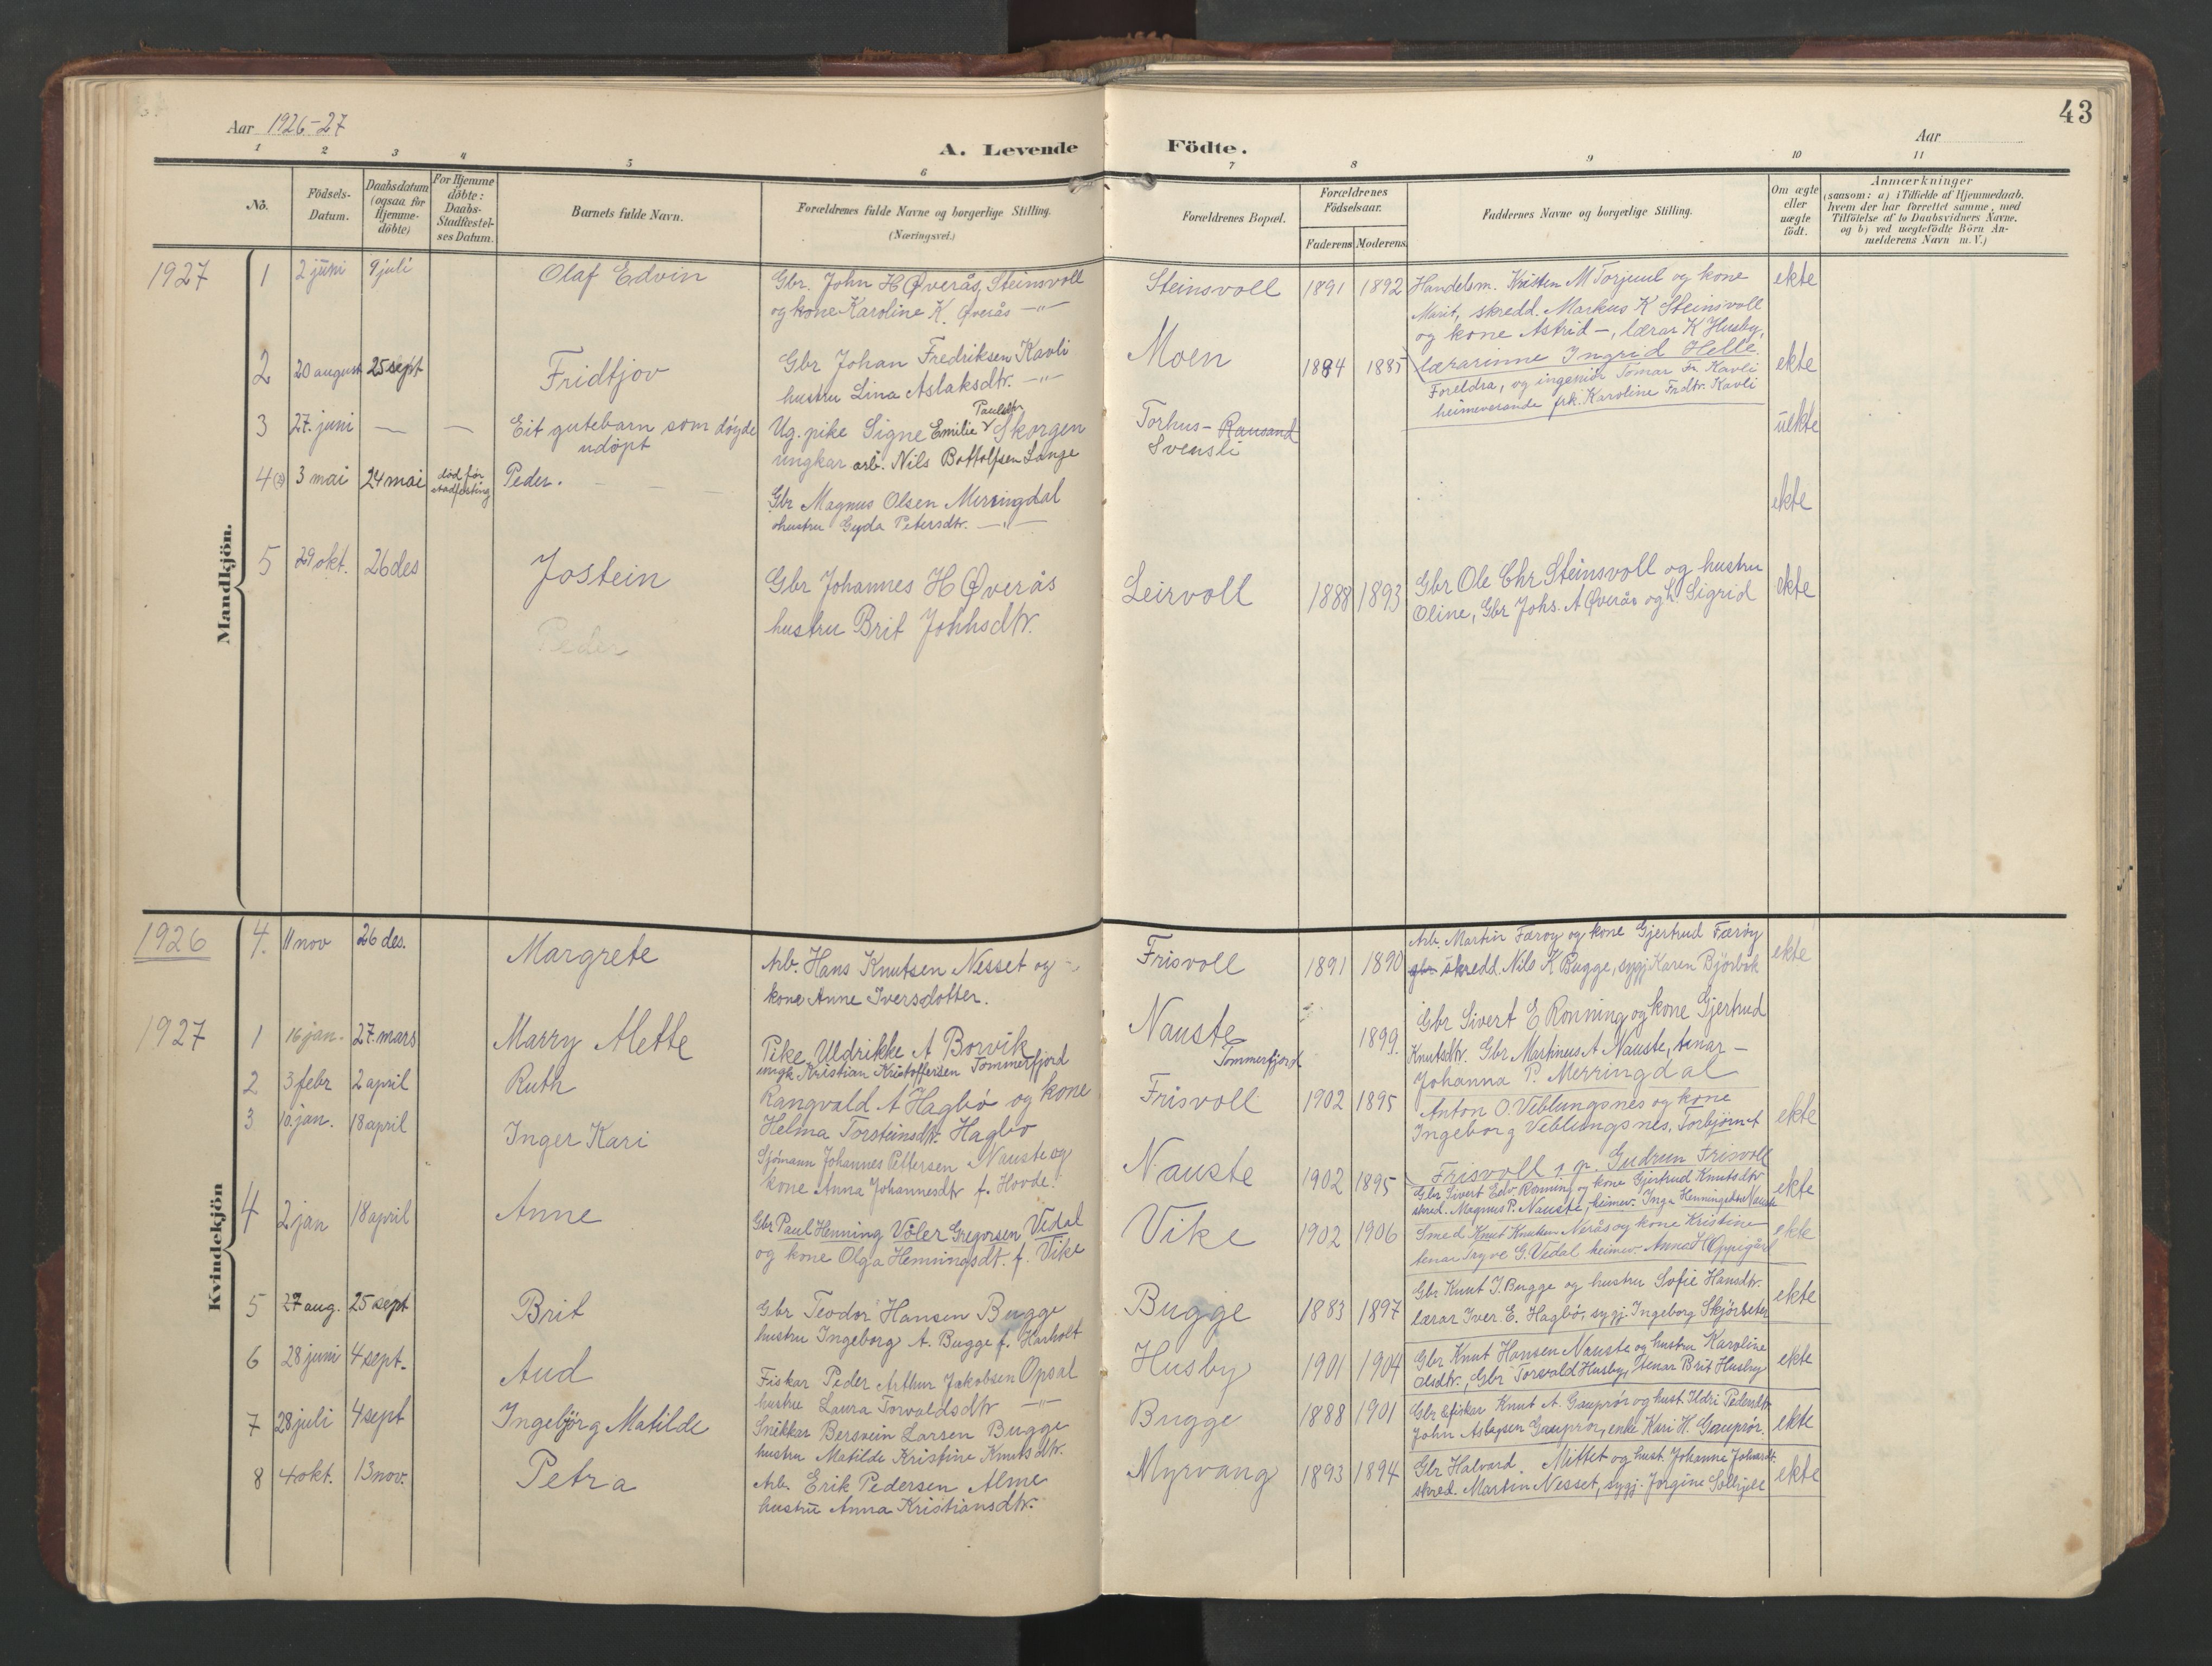 43
Aar 1926-27
Aar
A. Levende Födte.
1 2 3 4 5 6 7 8 9 10 11
No.
Födsels-
Datum.
Daabsdatum
(ogsaa for
Hjemme-
döbte)
For Hjemme
döbte:
Daabs-
Stadfæstel-
ses Datum.
Barnets fulde Navn.
Forældrenes fulde Navne og borgerlige Stilling.
(Næringsvei.)
Forældrenes Bopæl.
Forældrenes
Födselsaar.
Faderens Moderens
Faddernes Navne og borgerlige Stilling.
Om ægte
eller
uægte
födt.
Anmærkninger
(saasom: a) i Tilfælde af Hjemmedaab.
hvem der har forrettet samme, med
Tilföielse af to Daabsvidners Navne.
og b) ved uægtefödte Börn An-
melderens Navn m. V.)
Mandkjön.
1927 1 2 juni 9 juli Olaf Edvin
Gbr. John H Øverås, Steinsvoll
og kone Karoline K. Øverås —"—
Steinsvoll 1891 1892
Handelsm. Kristen M Torjuul og kone
Marit, skredd. Markus K Steinsvoll
og kone Astrid —, lærar K Husby,
lærarinne Ingrid Helle.
ekte
2 20 august 25 sept Fridtjov
Gbr Johan Fredriksen Kavli
hustru Lina Aslaksdtr. —"—
Moen 1884 1885
Foreldra, og ingeniör Tomar Fr. Kavli
heimeverande frk. Karoline Frdtr. Kavli
ekte
3 27. juni — — Eit gutebarn som döyde
udöpt
Paulsdtr
Ug. pike Signe Emilie Skorgen
ungkar arb. Nils Bottolfsen Lange
Torhus - Rausand
Svensli
uekte
4 (2) 3 mai 24 mai död för
stadfesting
Peder.
Gbr Magnus Olsen Merringdal
hustru Gyda Petersdtr. —"—
ekte
5 29 okt. 26 des Jostein
Gbr Johannes H Øverås
hustru Brit Johnsdtr.
Leirvoll 1888 1893
Gbr Ole Chr Steinsvoll og hustru
Oline, Gbr Johs. A Øverås og h. Sigrid
ekte
Peder
Kvindekjön
1926 4. 11 nov 26 des. Margrete
Arb. Hans Knutsen Nesset og
kone Anne Iversdotter.
Frisvoll 1891 1890
Arb. Martin Færøy og kone Gjertrud Færøy
gbr skredd. Nils K Bugge, sygj Karen Björbek
ekte
1927 1 16 jan. 27. mars Marry Alette
Pike Uldrikke A Borvik
ungk. Kristian Kristoffersen Tommerfjord
Nauste
Tommerfjord
1899.
Gbr Sivert E Ronning og kone Gjertrud
Knutsdtr. Gbr. Martinus A Nauste, tenar —
Johanna P. Merringdal
2 3 febr 2 april Ruth
Rangvald A Hagbö og kone
Helma Torsteinsdtr. Hagbo
Frisvoll 1902 1895
Anton O. Veblungsnes og kone
Ingeborg Veblungsnes, Torbjörn A
Frisvoll, g. p. Gudrun Frisvoll
ekte
3 10. jan. 18 april Inger Kari
Sjömann Johannes Pettersen Nauste og
kone Anna Johannesdtr f. Hovde.
Nauste 1902 1895
Gbr Sivert Edv. Ronning og kone Gjertrud Knutsdtr
skred. Magnus P. Nauste, heimev. Inga Henningsdtr Nauste
ekte
4 2 jan 18 april Anne
Gbr Paul Henning Våler Gregorsen Vedal
og kone Olga Henningsdt. f. Vike
Vike 1902 1906
Smed Knut Knutsen Nerås og kone Kristine
tenar Tryve G. Vedal heimev. Anna H Oppigård
ekte
5 27 aug. 25 sept Brit
Gbr Teodor Hansen Bugge
hustru Ingeborg A. Bugge f. Harholt
Bugge 1883 1897
Gbr Knut J. Bugge og hustru Sofie Hansdtr.
lærar Iver E. Hagbö, sygj. Ingeborg Skjörseter
ekte
6 28 juni 4 sept. Aud
Fiskar Peder Arthur Jakobsen Opsal
hustru Laura Torvaldsdtr —"—
Husby 1901 1904
Gbr Knut Hansen Nauste og hustru Karoline
Olsdtr., Gbr Torvald Husby, tenar Brit Husby
ekte
7 28 juli 4 sept Ingebjörg Matilde
Snikkar Bersvein Larsen Bugge
hustru Matilde Kristine Knutsdtr.
Bugge 1888 1901
Gbr & fiskar Knut A. Gauprör og hust. Ildri Pedersdtr
John Aslagsen Gauprör, enke Kari H. Gauprör.
ekte
8 4 okt. 13 nov. Petra
Arb. Erik Pedersen Alme
hustru Anna Kristiansdtr.
Myrvang 1893 1894
Gbr Halvard Mittet og hust. Johanne Johansdt.
skred. Martin Nesset, sygj. Jorgine Solhjell
ekte